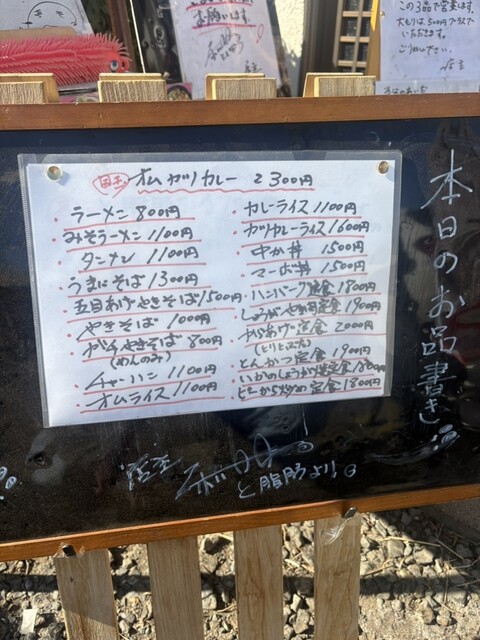 この3品で営業します。
大もりは500円プラスで
いただきます。
ご了承下さい。
店主
お願いします。
店主
本日のお品書き
オムカツカレー 2300円
・ラーメン 800円
・みそラーメン 1100円
・タンメン 1100円
・うまにそば 1300円
・五目あげやきそば 1500円
・やきそば 1000円
・カタやきそば 800円
(めんのみ)
・チャーハン 1100円
・オムライス 1100円
・カレーライス 1100円
・カツカレーライス 1600円
・中か丼 1500円
・マーボ丼 1500円
・ハンバーグ定食 1800円
・しょうがやき定食 1900円
・からあげ定食 2000円
・とんかつ定食 1900円
・いかのしょうが焼定食 1800円
定食 1800円
店主
と脂肪より。